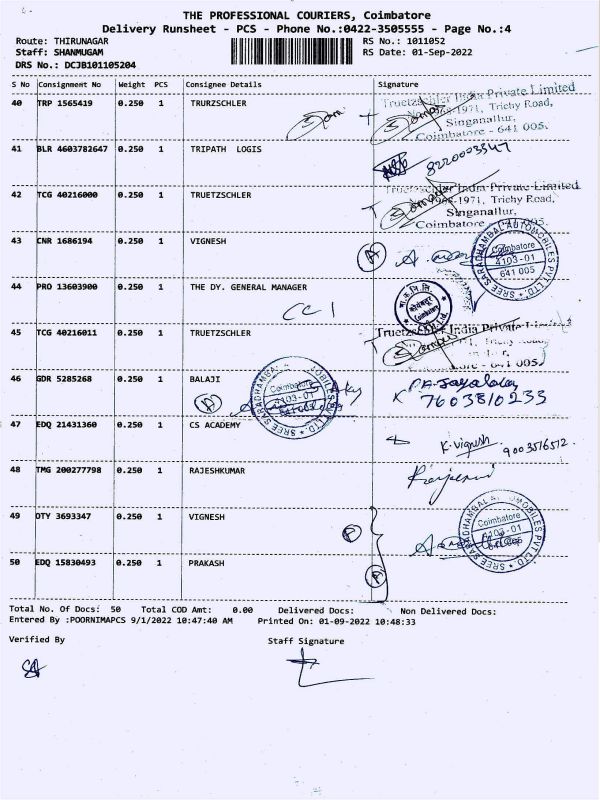 THE PROFESSIONAL COURIERS, Coimbatore
Delivery Runsheet - PCS - Phone No.:0422-3505555 - Page No.:4
Route: THIRUNAGAR RS No.: 1011052
Staff: SHANMUGAM RS Date: 01-Sep-2022
DRS No.: DCJB101105204
S No Consignment No Weight PCS Consignee Details Signature
40 TRP 1565419 0.250 1 TRURZSCHLER
Truetzschler India Private Limited
1971, Trichy Road,
Singanallur,
Coimbatore - 641 005.
41 BLR 4603782647 0.250 1 TRIPATH LOGIS
8220003347
42 TCG 40216000 0.250 1 TRUETZSCHLER
Truetzschler India Private Limited
1971, Trichy Road,
Singanallur,
Coimbatore 641 005.
43 CNR 1686194 0.250 1 VIGNESH
A
SREE SARADHAMBAL AUTOMOBILES PVT LTD.
Coimbatore
4103-01
641 005
44 PRO 13603900 0.250 1 THE DY. GENERAL MANAGER
CCI
45 TCG 40216011 0.250 1 TRUETZSCHLER
Truetzschler India Private Limited
46 GDR 5285268 0.250 1 BALAJI
Coimbatore
4103-01
7603810233
47 EDQ 21431360 0.250 1 CS ACADEMY
K.vignesh 9003516512.
48 TMG 200277798 0.250 1 RAJESHKUMAR
49 OTY 3693347 0.250 1 VIGNESH
Coimbatore
4103-01
50 EDQ 15830493 0.250 1 PRAKASH
Total No. Of Docs: 50 Total COD Amt: 0.00 Delivered Docs: Non Delivered Docs:
Entered By :POORNIMAPCS 9/1/2022 10:47:40 AM Printed On: 01-09-2022 10:48:33
Verified By Staff Signature